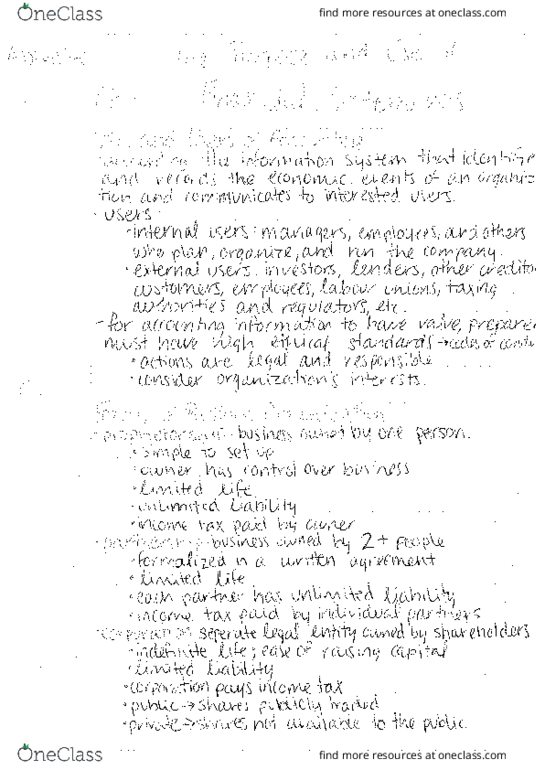 OneClass
find more resources at oneclass.com
Purpose and Use of
Financial Statements
Uses and Users of Accounting
accounting the information system that identifie
and records the economic events of an organiz
tion and communicates to interested users.
• users
• internal users: managers, employees, and others
who plan, organize, and run the company.
• external users: investors, lenders, other credito
customers, employees, labour unions, taxing
authorities and regulators, etc.
• for accounting information to have value, preparer
must have high ethical standards → codes of
• actions are legal and responsible
• consider organization's interests.
Forms of Business Organization
• proprietorship: business owned by one person.
• simple to set up
• owner has control over business
• limited life
• unlimited liability
• income tax paid by owner
• partnership: business owned by 2+ people
• formalized in a written agreement
• limited life
• each partner has unlimited liability
• income tax paid by individual partners
• corporation: seperate legal entity owned by shareholders
• indefinite life; ease of raising capital
• limited liability
• corporation pays income tax
• public → shares publicly traded
• private → shares not available to the public.
OneClass
find more resources at oneclass.com